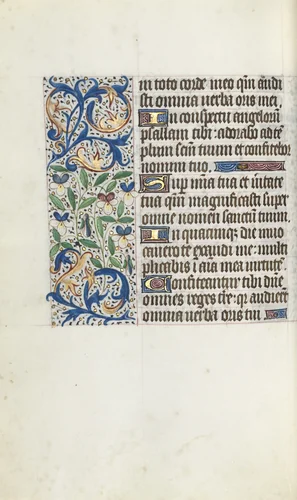 in toto corde meo qm̄ audi
sti omnia verba oris mei.
In conspectu angeloꝝ
psallam tibi: adorabo ad tē
plum scm̄ tuum et confitebor
nomini tuo.
Sup mīa tua et ūitate
tua qm̄ magnificasti super
omne nomen sanctū tuum.
In quacunq; die inuo
cauero te exaudi me: multi
plicabis ī aīa mea uirtutē.
Confiteantur tibi dñe
omnes reges tr̄e: qr audierūt
omnia verba oris tui